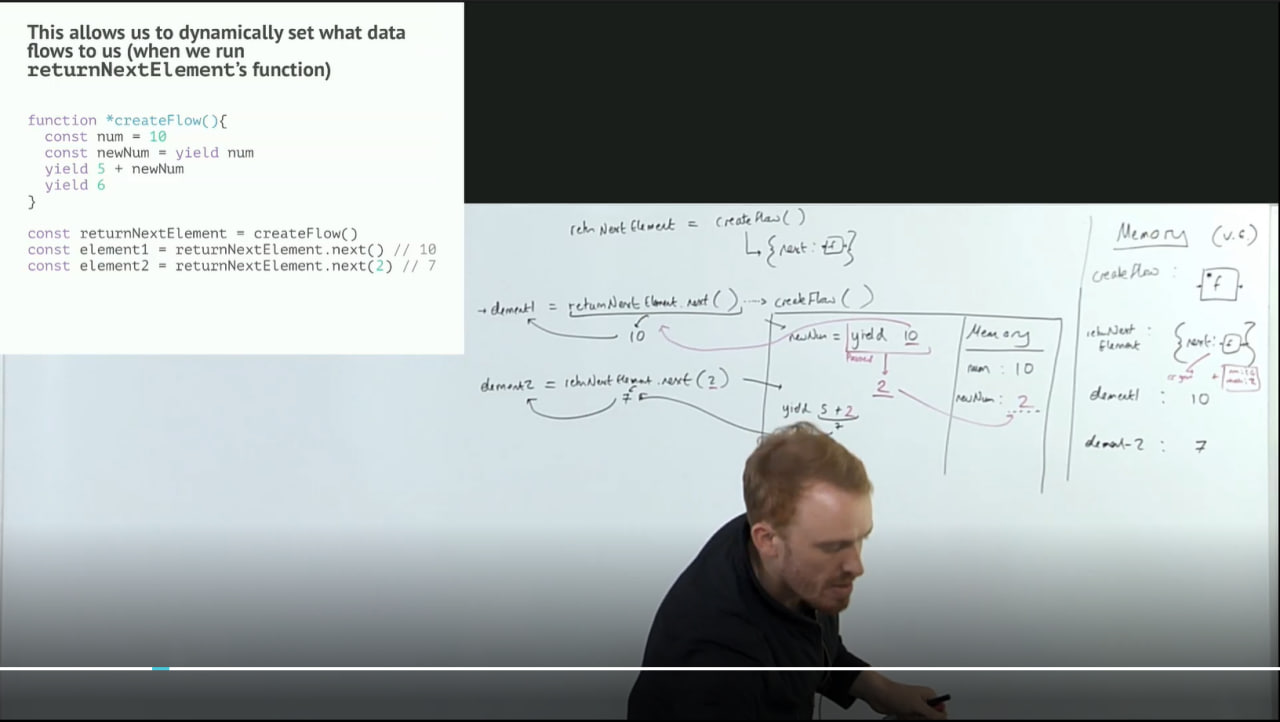 This allows us to dynamically set what data
flows to us (when we run
returnNextElement's function)
function *createFlow(){
const num = 10
const newNum = yield num
yield 5 + newNum
yield 6
}
const returnNextElement = createFlow()
const element1 = returnNextElement.next() // 10
const element2 = returnNextElement.next(2) // 7
returnNextElement = createFlow()
{next: f}
element1 = returnNextElement.next() createFlow()
10
newNum = yield 10
Paused
2
element2 = returnNextElement.next(2)
7
yield 5 + 2
7
Memory
num : 10
newNum : 2
Memory (v.e.)
createFlow : *f
returnNext : {next: f}
Element
element1 : 10
element2 : 7